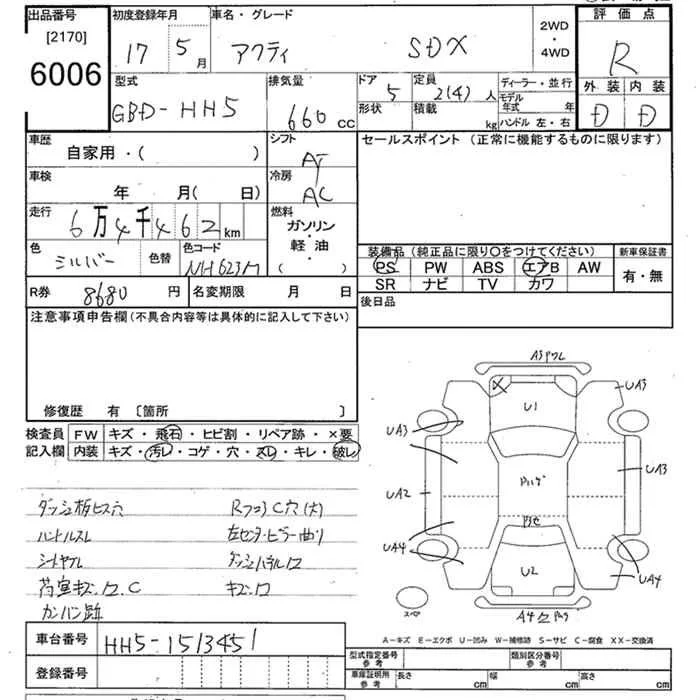 出品番号
[2170]
6006
初度登録年月
17 5月
車名・グレード
アクティ SDX
2WD・4WD
評価点
R
外装 内装
D D
型式
GBD-HH5
排気量
660cc
ドア
5
形状
定員
2(4)人
積載
kg
ディーラー・並行
モデル年式 年
ハンドル 左・右
車歴
自家用・( )
シフト
AT
車検
年 月( 日)
冷房
AC
走行
6万4千462km
燃料
ガソリン・軽油・( )
色
シルバー
色替
色コード
NH623M
セールスポイント (正常に機能するものに限ります)
装備品 (純正品に限り〇をつけてください)
PS PW ABS エアB AW
SR ナビ TV カワ
新車保証書
有・無
R券 8680円
名変期限 月 日
後日品
注意事項申告欄 (不具合内容等は具体的に記入して下さい)
修復歴 有 〔箇所 〕
検査員記入欄
FW キズ・飛石・ヒビ割・リペア跡・×要
内装 キズ・汚レ・コゲ・穴・スレ・キレ・破レ
ダッシュ板ビス穴
Rフロア C穴(大)
ハンドルスレ
左センターピラー曲り
シートヤブレ
ダッシュパネル
荷室キズ C
キズ
カンバン跡
A3
U1
UA3
UA3
UA3
UA2
UA4
UA4
U2
A4
スペア
A−キズ E−エクボ U−凹み W−補修跡 S−サビ C−腐食 XX−交換済
車台番号 HH5-1513451
登録番号
型式指定番号 参考
類別区分番号 参考
車庫証明用 参考
長さ cm
幅 cm
高さ cm